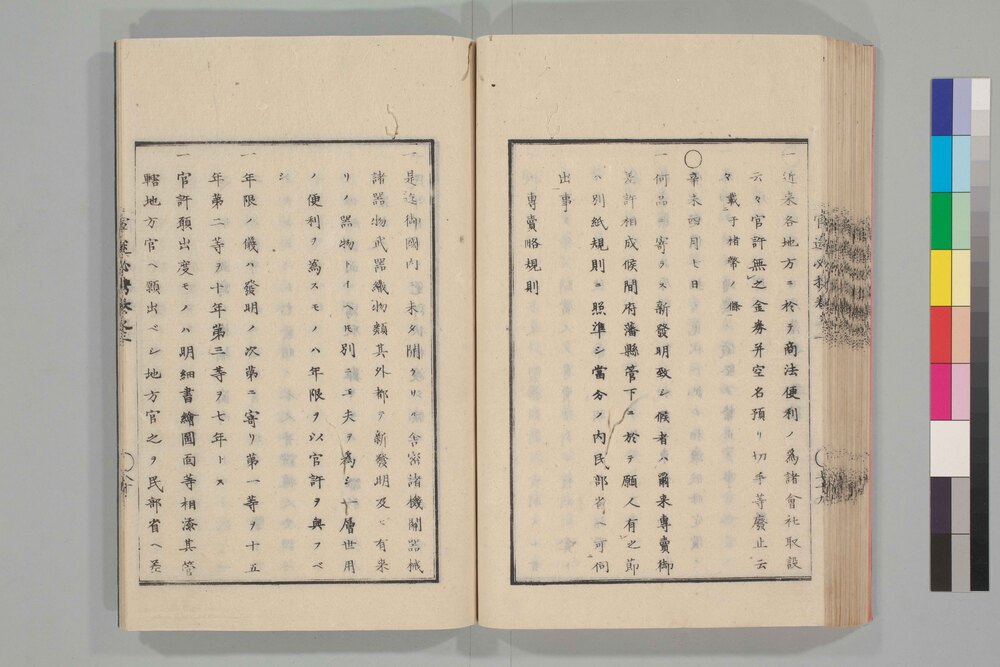 一近來各地方ニ於テ商法便利ノ爲諸會社取設
云々官許無之金劵并空名預リ切手等廢止云
々載于楮幣ノ條
〇辛未四月七日
一何品ニ寄ラス新發明致シ候者ハ爾來專賣御
差許相成候間府藩縣管下ニ於テ願人有之節
ハ別紙規則ニ照準シ當分ノ內民部省ヘ可伺
出事
專賣略規則
一是迄御國內未タ開ケサル舍密諸機關器械
諸器物武器織物類其外都テ新發明及ヒ有來
リノ器物トイヘモ別ニ工夫ヲ爲シ一層世用
ノ便利ヲ爲スモノハ年限ヲ以官許ヲ與フベ
シ
一年限ノ儀ハ發明ノ次第ニ寄リ第一等ヲ十五
年第二等ヲ十年第三等ヲ七年トス
一官許願出度モノハ明細書繪圖面等相添其管
轄地方官ヘ願出ベシ地方官之ヲ民部省ヘ差